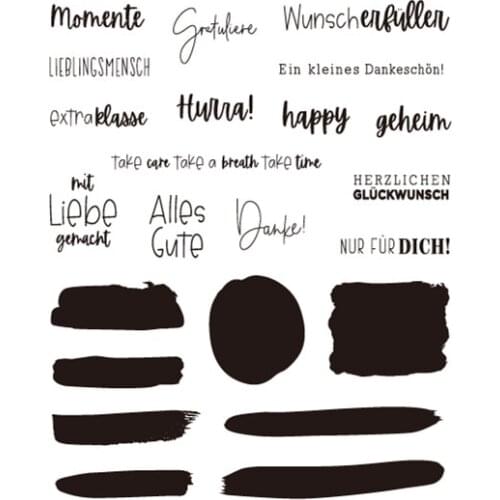 Momente
Gratuliere
Wunscherfüller
LIEBLINGSMENSCH
Ein kleines Dankeschön!
extraklasse
Hurra!
happy
geheim
take care take a breath take time
mit
Liebe
gemacht
Alles
Gute
Danke!
HERZLICHEN
GLÜCKWUNSCH
NUR FÜR DICH!